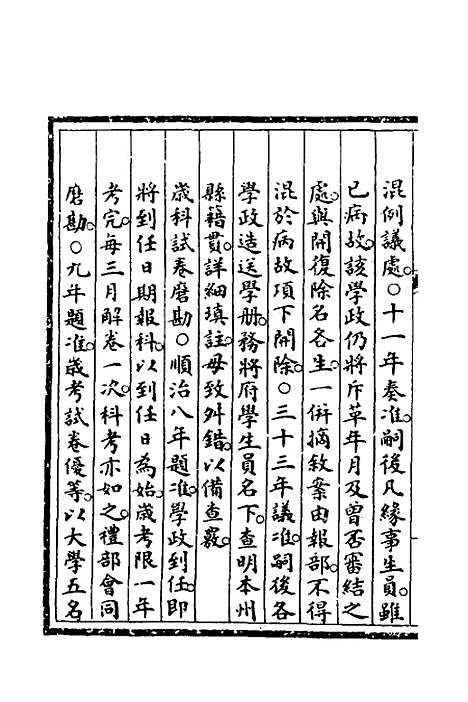 混例議處○十一年奏准嗣後凡緣事生員雖
已病故該學政仍將斥革年月及曾否審結之
處與開復除名各生一併摘敘案由報部不得
混於病故項下開除○三十三年議准嗣後各
學政造送學册務將府學生員名下查明本州
縣籍貫詳細填註毋致舛錯以備查覈
歲科試卷磨勘○順治八年題准學政到任即
將到任日期報科以到任日為始歲考限一年
考完每三月解卷一次科考亦如之禮部會同
磨勘○九年題准歲考試卷優等以大學五名